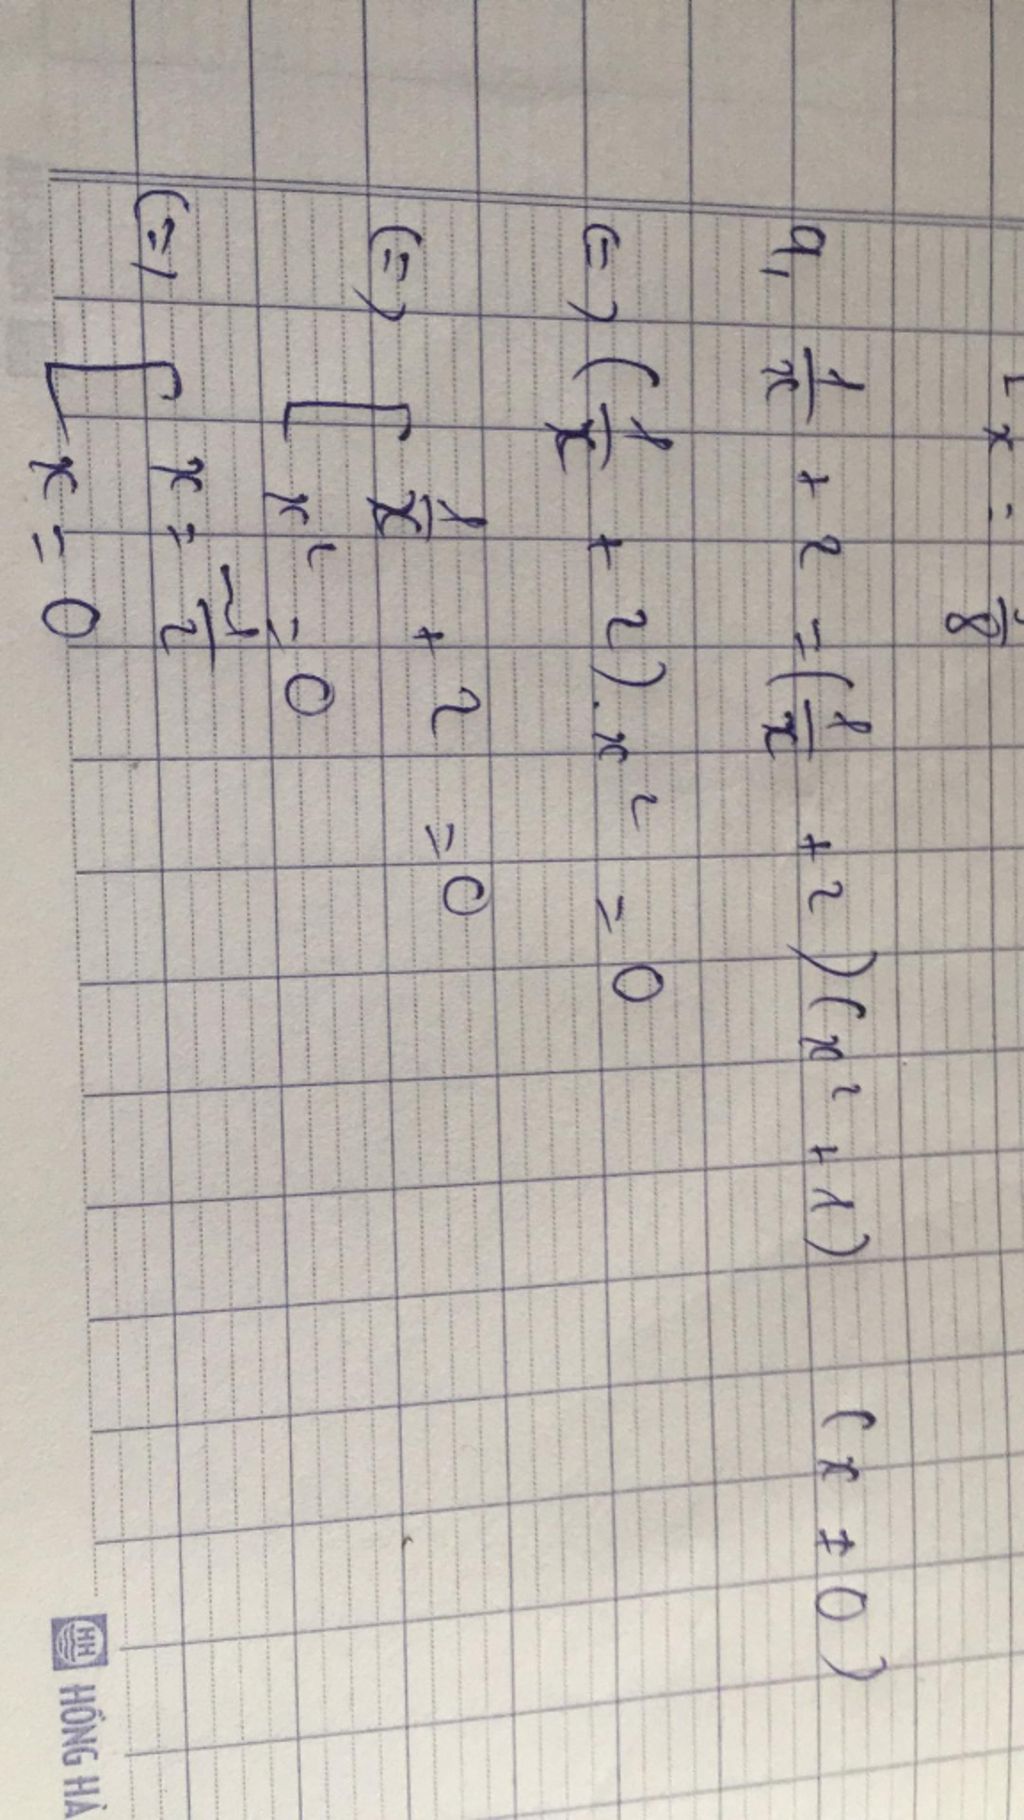 x = 1/8
9, 1/x + 2 = (1/x + 2)(x² + 1) (x ≠ 0)
(=) (1/x + 2).x² = 0
(=) [ 1/x + 2 = 0
x² = 0
(=) [ x = -1/2
x = 0
HH HỒNG HÀ